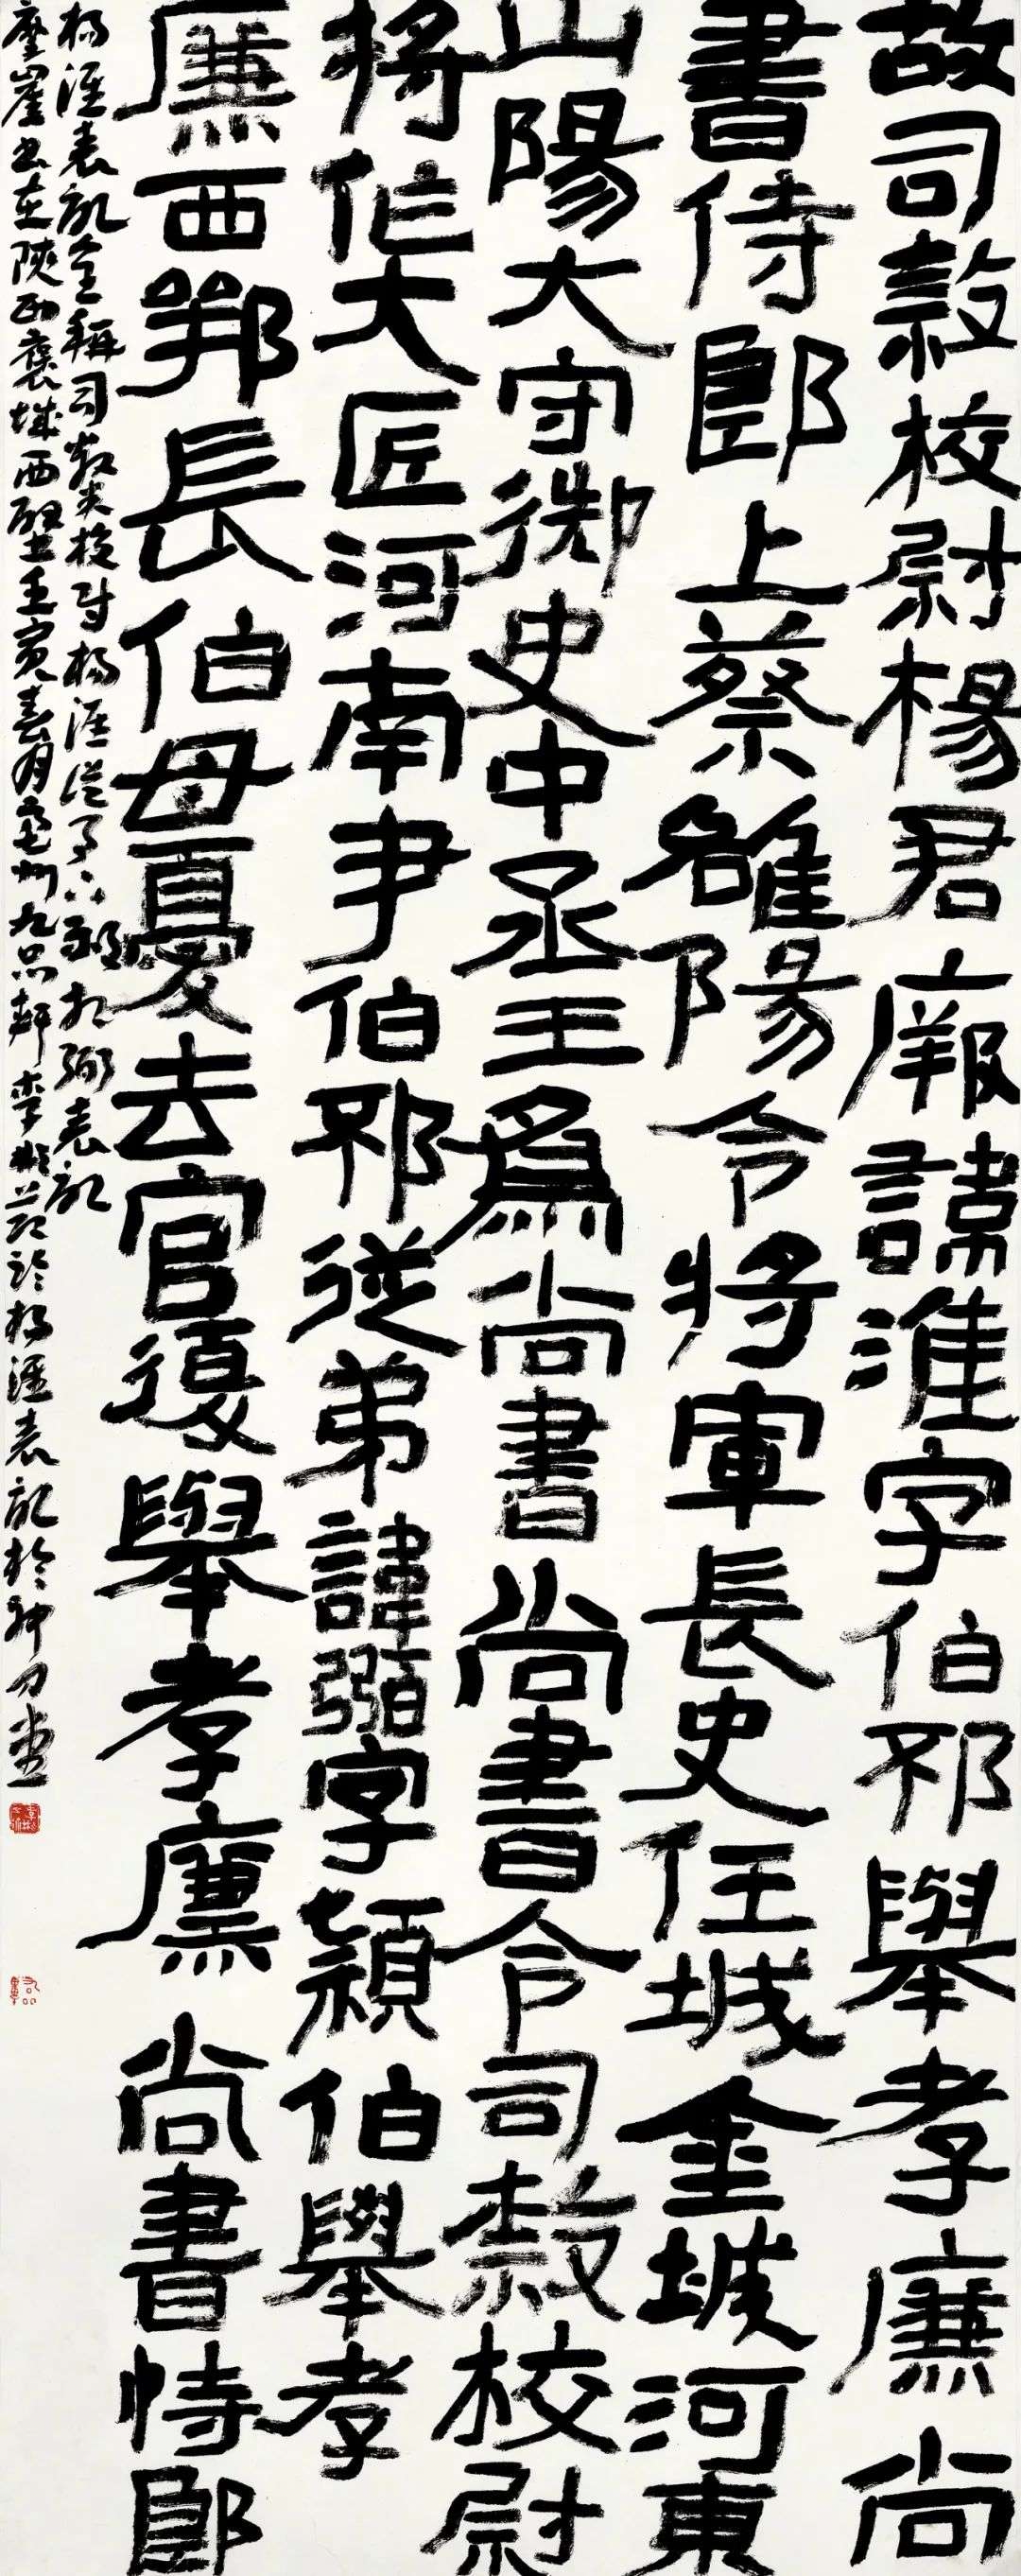 故司㲄校尉楊君厥諱淮字伯邳舉孝廉尚
書侍郎上蔡雒陽令將軍長史任城金城河東
山陽大守御史中丞王為尚書尚書令司㲄校尉
將作大匠河南尹伯邳從弟諱弼字穎伯舉孝
廉西鄂長伯母憂去官復舉孝廉尚書侍郎
楊淮表記全稱司隸校尉楊淮從事下邳相弼表記
摩崖書在陝西褒城西壁壬寅春月亳州九品軒李
於楊淮表記於神刀堂